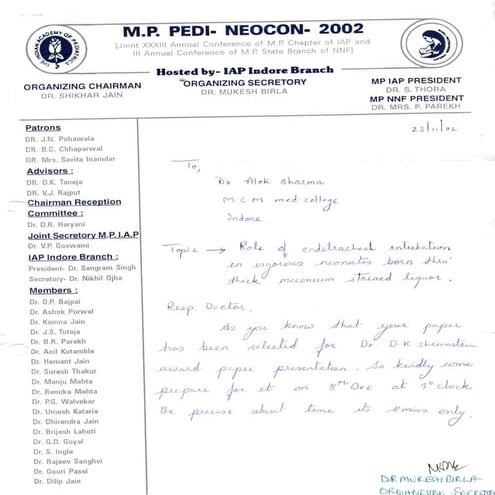 M.P. PEDI- NEOCON- 2002
[Joint XXXIII Annual Conference of M.P. Chapter of IAP and
III Annual Conference of M.P. State Branch of NNF]
Hosted by- IAP Indore Branch
ORGANIZING CHAIRMAN
DR. SHIKHAR JAIN
ORGANIZING SECRETARY
DR. MUKESH BIRLA
MP IAP PRESIDENT
DR. S. THORA
MP NNF PRESIDENT
DR. MRS. P. PAREKH
Patrons
DR. J.N. Pohawala
DR. B.C. Chhaparwal
DR. Mrs. Savita Inamdar
Advisors :
DR. D.K. Taneja
DR. V.J. Rajput
Chairman Reception
Committee :
Dr. D.R. Haryani
Joint Secretary M.P.I.A.P
Dr. V.P. Goswami
IAP Indore Branch :
President- Dr. Sangram Singh
Secretary- Dr. Nikhil Ojha
Members :
Dr. O.P. Bajpai
Dr. Ashok Porwal
Dr. Kamna Jain
Dr. J.S. Tuteja
Dr. B.R. Parekh
Dr. Anil Kutamble
Dr. Hemant Jain
Dr. Suresh Thakur
Dr. Manju Mehta
Dr. Renuka Mehta
Dr. P.G. Walvekar
Dr. Umesh Kataria
Dr. Dhirendra Jain
Dr. Brijesh Lahoti
Dr. G.D. Goyal
Dr. S. Ingle
Dr. Rajeev Sanghvi
Dr. Gouri Passi
Dr. Dilip Jain
23/11/02
To,
Dr Alok Sharma
M G M med. college
Indore.
Topic → Role of endotracheal intubation
in vigorous neonates born thru'
thick meconium stained liquor.
Resp. Doctor.
As you know that your paper
has been selected for Dr. D.K. shrivastava
award paper presentation. So kindly come
prepare for it on 8th Dec at o'clock
Be precise about time its 8 mins only.
DR MUKESH BIRLA
ORGANISING SECRETARY